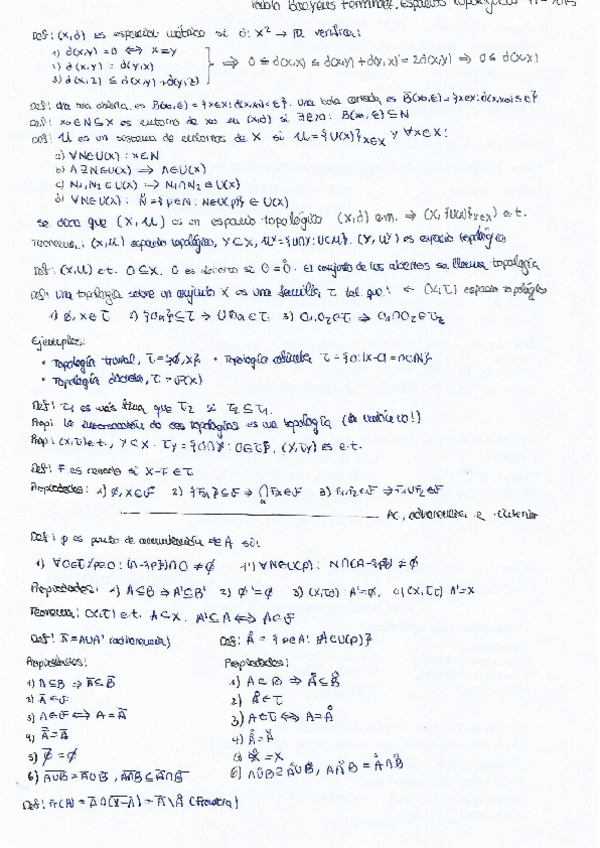 Def: (X,d) es espacio métrico si d: X² → ℝ verifica:
1) d(x,y) = 0 ⟺ x=y
2) d(x,y) = d(y,x)
3) d(x,z) ≤ d(x,y) + d(y,z)
⟹ 0 ≤ d(x,x) ≤ d(x,y) + d(y,x) = 2d(x,y) ⟹ 0 ≤ d(x,y)
Def: Una bola abierta es B(x₀,ε) = {x∈X: d(x,x₀)<ε}. Una bola cerrada es B̄(x₀,ε) = {x∈X: d(x,x₀)≤ε}
Def: x₀∈N⊆X es entorno de x₀ en (X,d) si ∃ε>0: B(x₀,ε)⊆N
Def: U es un sistema de entornos de X si U={U(x)}x∈X y ∀x∈X:
a) ∀N∈U(x): x∈N
b) A⊇N∈U(x) ⟹ A∈U(x)
c) N₁,N₂∈U(x) ⟹ N₁∩N₂∈U(x)
d) ∀N∈U(x): N̊={p∈N: N∈U(p)}∈U(x)
se dice que (X,U) es un espacio topológico (X,d) e.m. ⟹ (X,{U(x)}x∈X) e.t.
Teorema: (X,U) espacio topológico, Y⊂X, U'={U∩Y: U∈U}. (Y,U') es espacio topológico
Def: (X,U) e.t. O⊆X. O es abierto si O=O̊. El conjunto de los abiertos se llama topología
Def: Una topología sobre un conjunto X es una familia τ tal que: ← (X,τ) espacio topológico
1) ∅,X∈τ 2) {Oα}⊆τ → ∪Oα∈τ 3) O₁,O₂∈τ ⟹ O₁∩O₂∈τ
Ejemplos:
• Topología trivial, τ={∅,X} • Topología cofinita
• Topología discreta, τ=P(X)
Def: τ₁ es más fina que τ₂ si τ₂⊆τ₁
Prop: La intersección de dos topologías es una topología
Prop: (X,τ) e.t., Y⊂X. τY={O∩Y: O∈τ}, (Y,τY) es e.t.
Def: F es cerrado si X-F∈τ
Propiedades: 1) ∅,X∈F 2) {Fα}⊆F → ∩Fα∈F 3) F₁,F₂∈F → F₁∪F₂∈F
AC, adherencia e interior
Def: p es punto de acumulación de A si:
1) ∀O∈τ/p∈O: (A-{p})∩O≠∅ 1') ∀N∈U(p): N∩(A-{p})≠∅
Propiedades: 1) A⊆B ⟹ A'⊆B' 2) ∅'=∅
Teorema: (X,τ) e.t. A⊂X. A'⊆A ⟺ A∈F
Def: Ā=A∪A' (adherencia) Def: Å={p∈A: A∈U(p)}
Propiedades:
1) A⊆B ⟹ Ā⊆B̄
2) Ā∈F
3) A∈F ⟺ A=Ā
4) A̿=Ā
5) ∅̄=∅
6) A∪B = Ā∪B̄, A∩B ⊆ Ā∩B̄
Propiedades:
1) A⊆B ⟹ Å⊆B̊
2) Å∈τ
3) A∈τ ⟺ A=Å
4) Å=Å
5) X̊=X
6) A∪B ⊇ Å∪B̊, A∩B = Å∩B̊
Def: Fr(A)=Ā∩(X-A)=Ā\Å (Frontera)